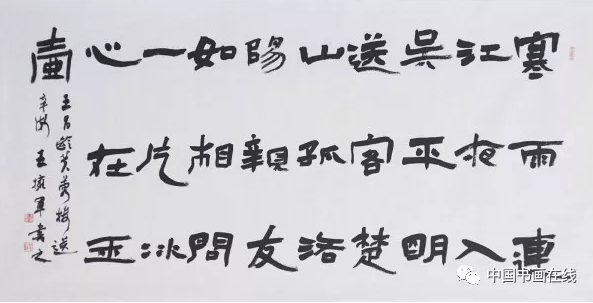 寒雨連
江夜入
吴平明
送客楚
山孤洛
陽親友
如相問
一片冰
心在玉
壺
王昌齡芙蓉樓送
辛 王 軍書之
中国书画在线